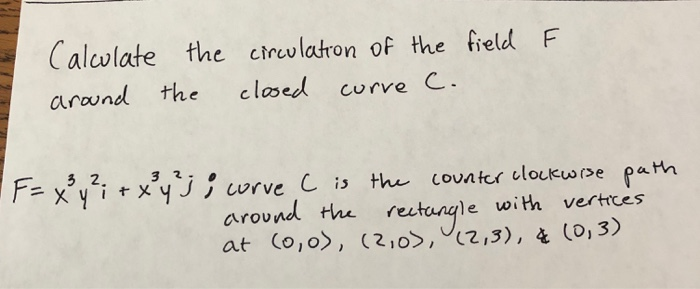 Calculate the circulation of the field F
around the closed curve C.
F= x³y²i + x³y²j ; curve C is the counterclockwise path
around the rectangle with vertices
at (0,0), (2,0), (2,3), & (0,3)